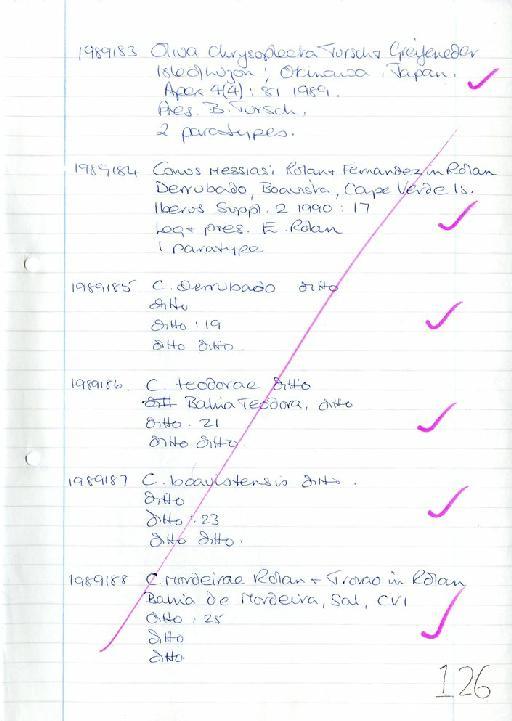 1989183 Oliva chrysoplecta Tursch + Greifeneder
Okinawa, Japan.
Apex 4(4): 81 1989.
Pres. B. Tursch.
2 paratypes.
1989184 Conus Messiasi Rolan + Fernandez in Rolan
Derrubado, Boavista, Cape Verde Is.
Iberus Suppl. 2 1990: 17
Leg + pres. E. Rolan
1 paratype
1989185 C. Derrubado ditto
ditto
ditto : 19
ditto ditto
1989186 C. teodorae ditto
Bahia Teodora, ditto
ditto : 21
ditto ditto
1989187 C. boavistensis ditto.
ditto
ditto : 23
ditto ditto.
1989188 C. Mordeirae Rolan + Trovao in Rolan
Bahia de Mordeira, Sal, CVI
ditto : 25
ditto
ditto
126